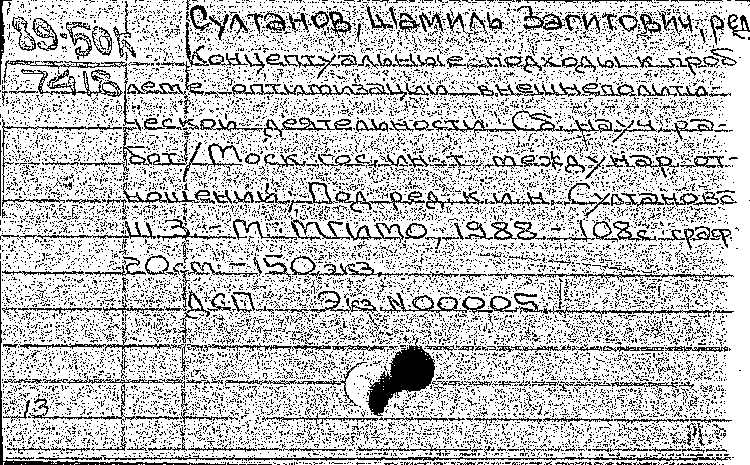 89-50к
7418
Султанов, Шамиль Загитович, ред.
Концептуальные подходы к проб
леме оптимизации внешнеполити-
ческой деятельности: Сб. науч. ра-
бот / Моск. гос. ин-т междунар. от-
ношений; Под ред. к.и.н. Султанова
Ш.З. - М.: МГИМО, 1988. - 108с.: граф.
20см. - 150 экз.
ДСП Экз. N 00005.
13